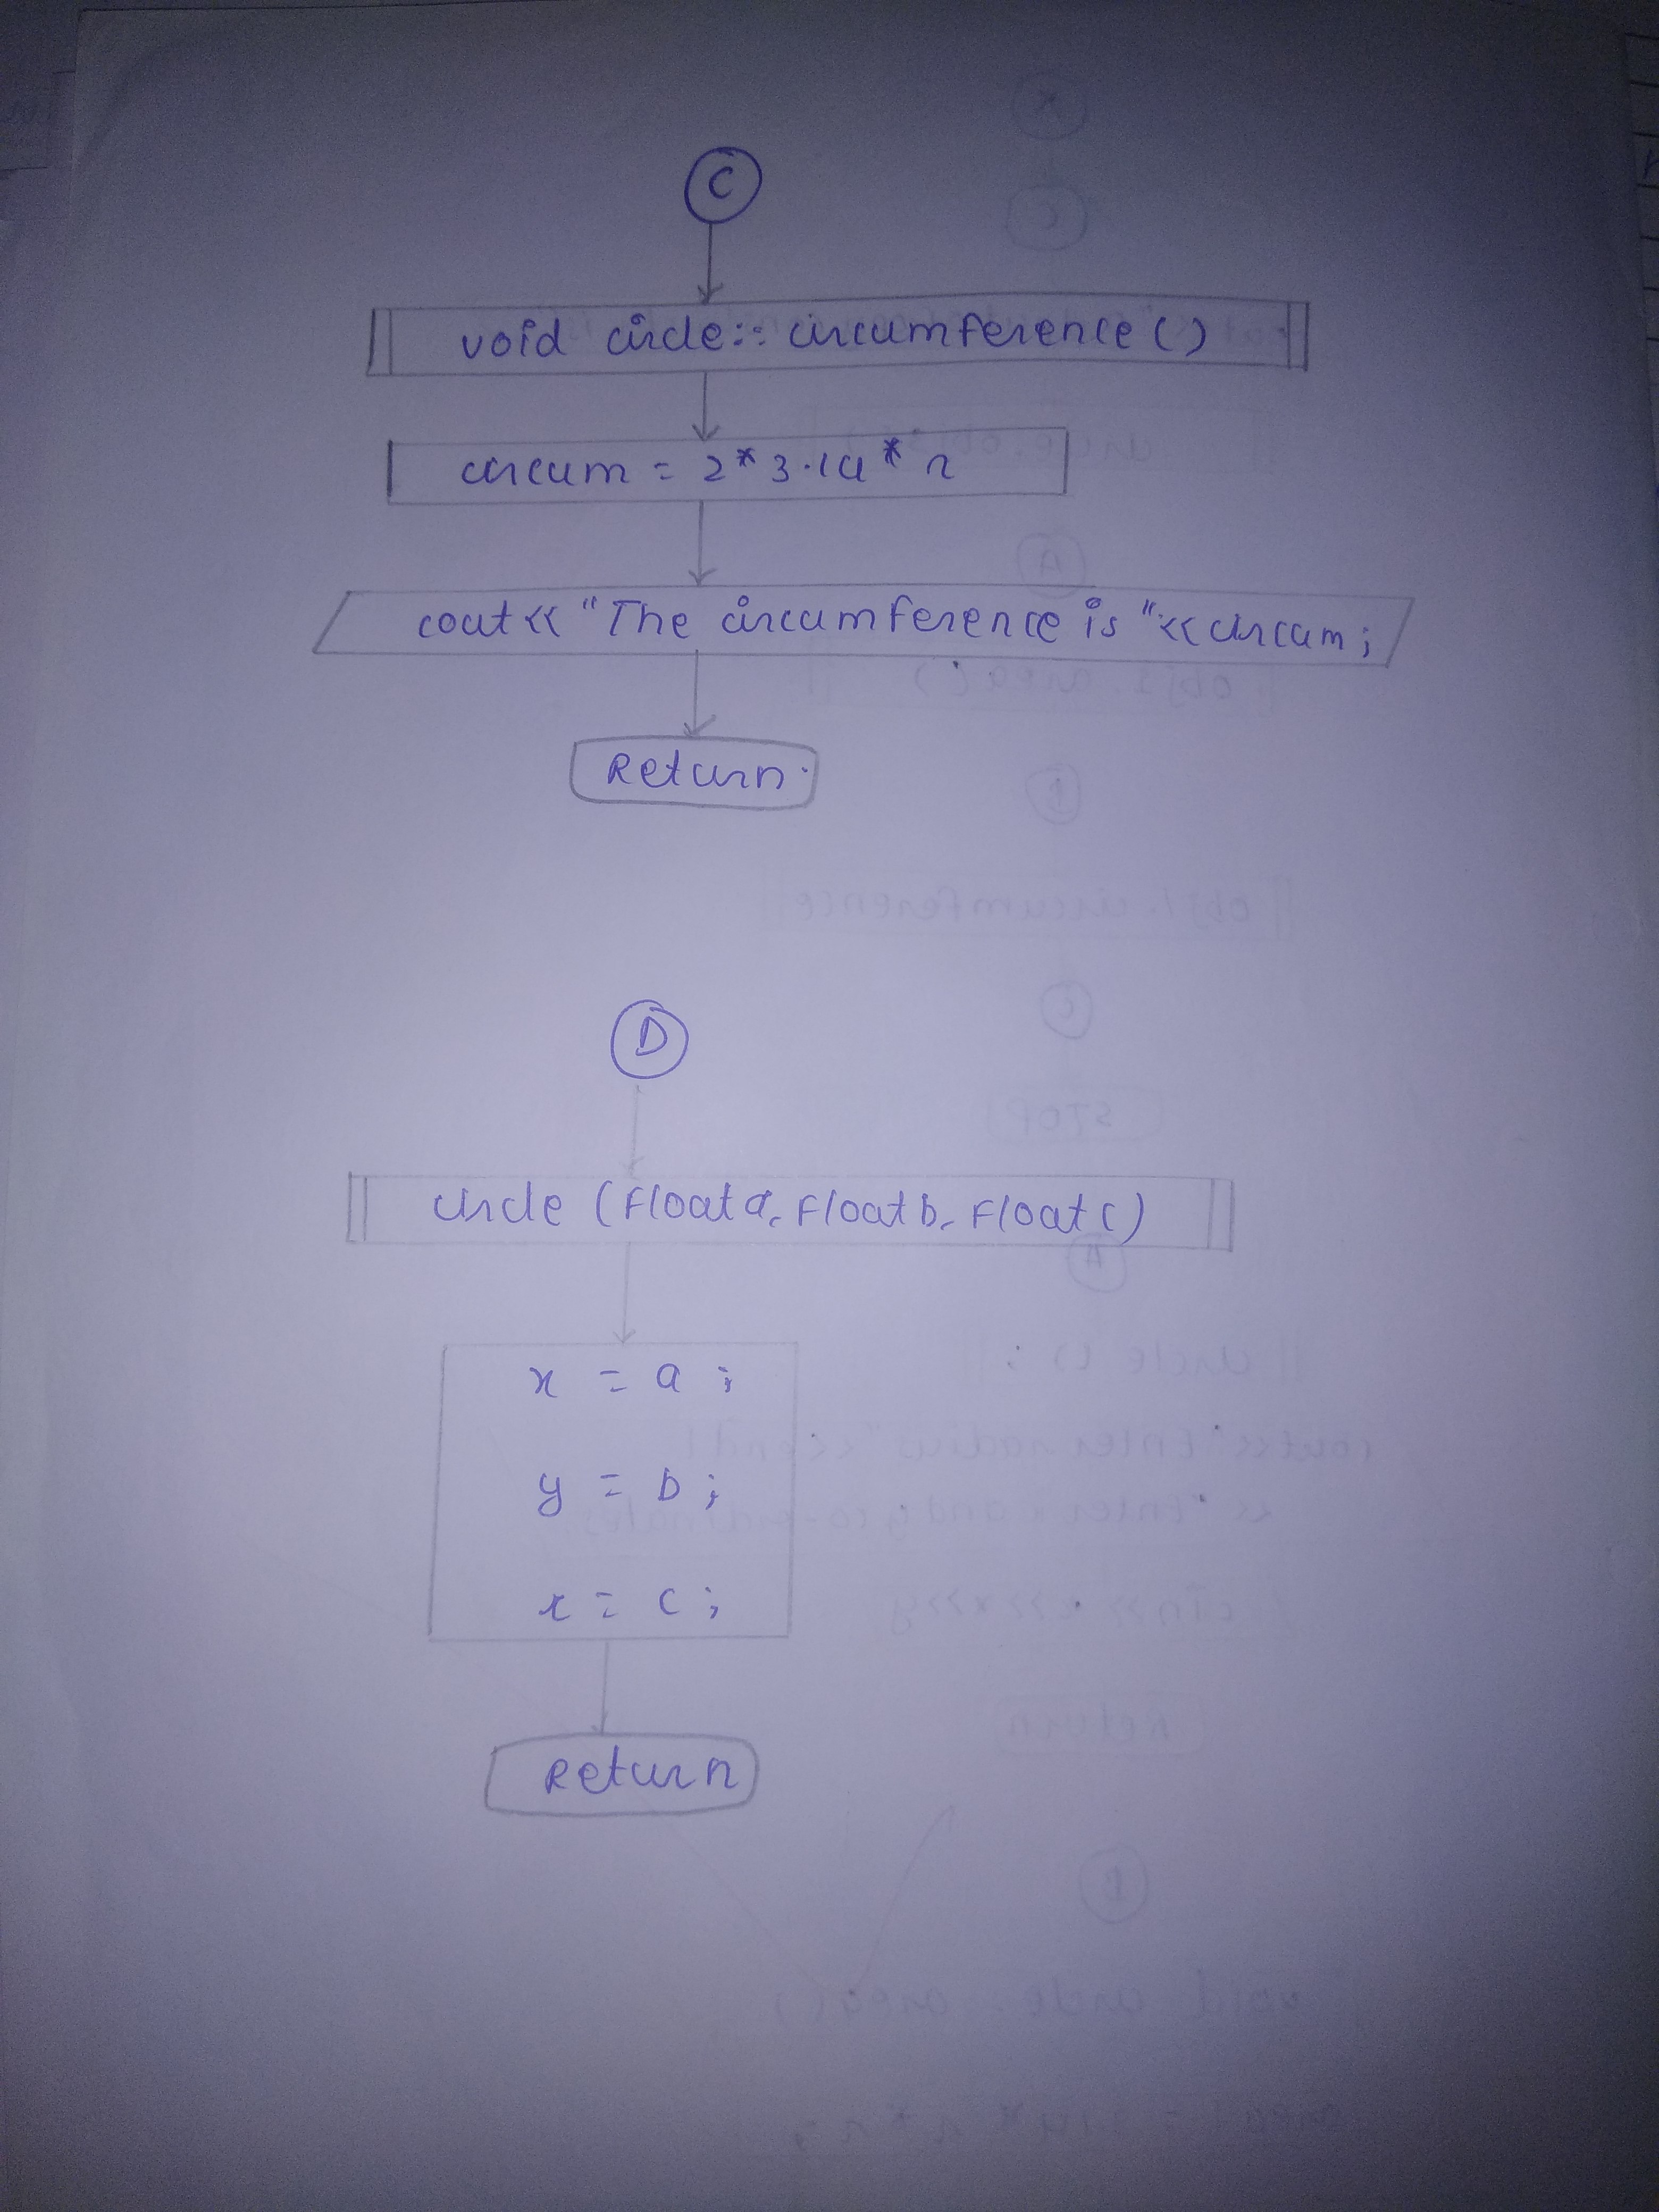 C
void circle :: circumference ()
circum = 2 * 3.14 * r
cout << "The circumference is " << circum ;
Return.
D
circle (Float a, Float b, Float c)
x = a ;
y = b ;
r = c ;
Return